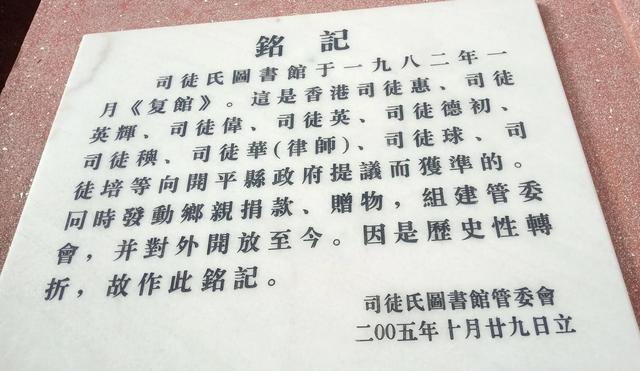 銘記
司徒氏圖書館于一九八二年一
月《复館》。這是香港司徒惠、司徒
英輝、司徒偉、司徒英、司徒德初、
司徒穗、司徒華(律師)、司徒球、司
徒培等向開平縣政府提議而獲準的。
同時發動鄉親捐款、贈物，組建管委
會，并對外開放至今。因是歷史性轉
折，故作此銘記。
司徒氏圖書館管委會
二00五年十月廿九日立